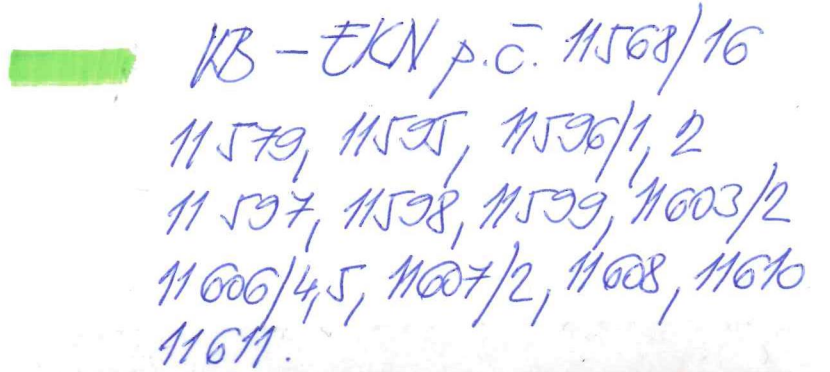 KB - EKN p.č. 11568/16
11579, 11595, 11596/1, 2
11597, 11598, 11599, 11603/2
11606/4,5, 11607/2, 11608, 11610
11611.